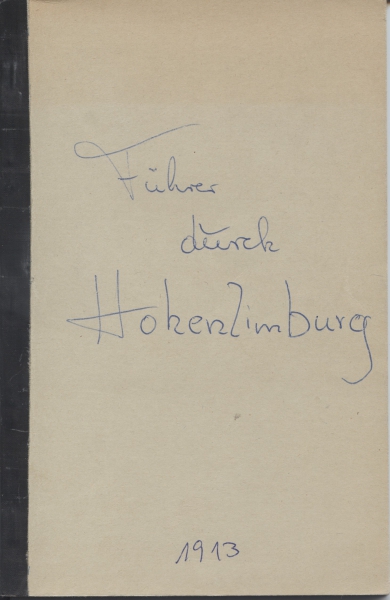 Führer
durch
Hohenlimburg
1913